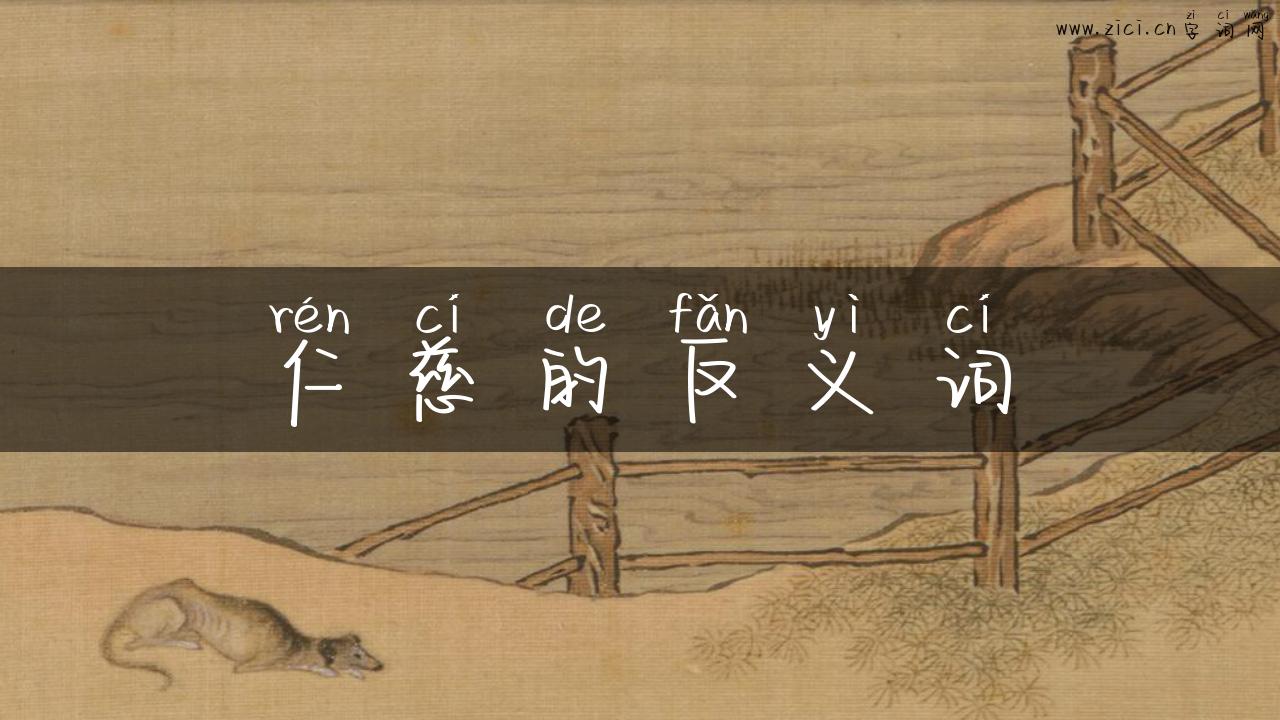 zì cí wǎng
www.zici.cn字词网
rén cí de fǎn yì cí
仁慈的反义词